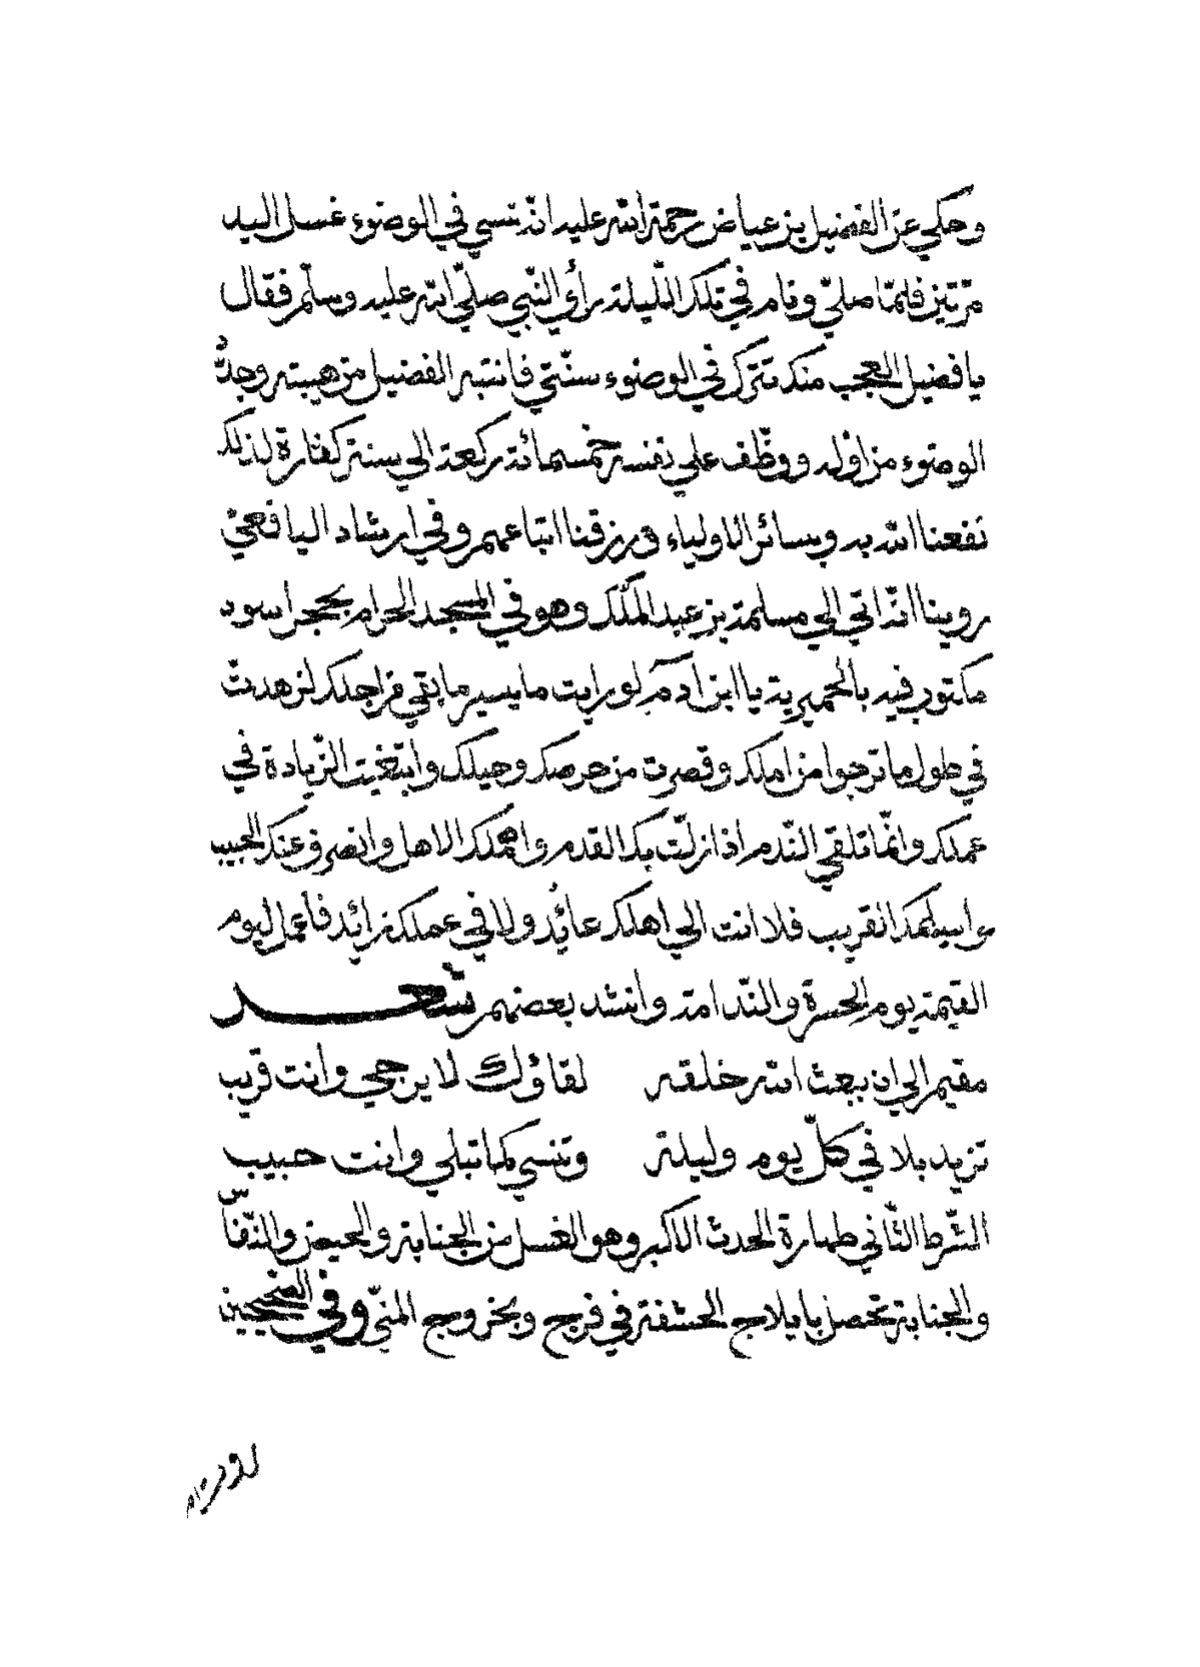 وحكي عن الفضيل بن عياض رحمة الله عليه انه نسي في الوضوء غسل اليد
مرّتين فلمّا صلّي ونام في تلك اللّيلة رأي النّبي صلّي الله عليه وسلّم فقال
يا فضيل العجب منك تترك في الوضوء سنّتي فانتبه الفضيل من هيبته وجدّد
الوضوء من اوّله ووظّف علي نفسه خمسمائة ركعة الي سنة كفارة لذلك
نفعنا الله به وبسائر الاولياء ورزقنا اتباعهم وفي ارشاد اليافعي
روينا انّه اتي الي مسلمة بن عبد الملك وهو في المسجد الحرام بحجر اسود
مكتوب فيه بالحميرية يا ابن آدم لو رايت ما يسير ما بقي من اجلك لزهدت
في طول ما ترجوا من املك وقصرت من حرصك وحيلك وابتغيت الزّيادة في
عملك وانّما تلقي النّدم اذا زلّت بك القدم واهملك الاهل وانصرف عنك الحبيب
القريب فلا انت الي اهلك عائد ولا في عملك زائد فاعمل ليوم
القيمة يوم الحسرة والنّدامة وانشد بعضهم شعر
مقيم الي ان يبعث الله خلقه لقاؤك لا يرجي وانت قريب
تزيد بلا في كلّ يوم وليلة وتنسي كما تبلي وانت حبيب
الشّرط الثّاني طهارة الحدث الاكبر وهو الغسل من الجنابة والحيض والنّفاس
والجنابة تحصل بايلاج الحشفة في فرج وبخروج المنيّ وفي الصحيحين